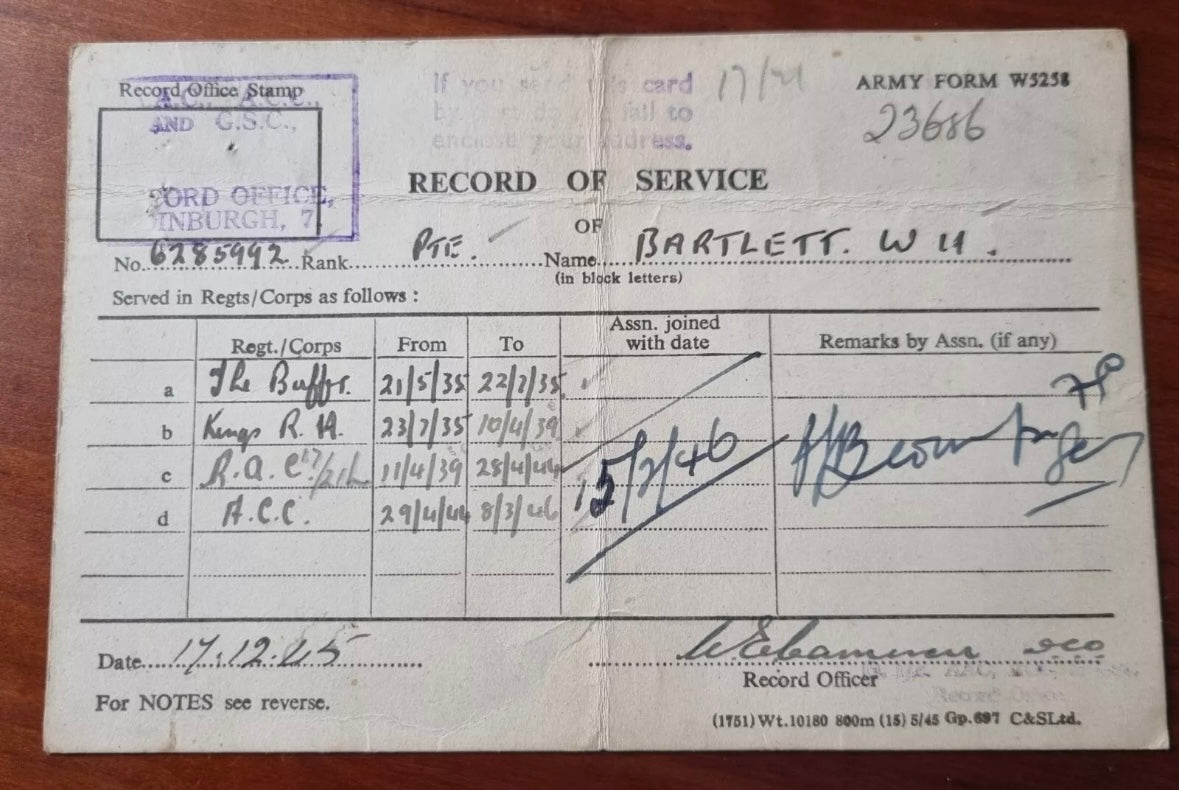 Record Office Stamp
A.C., A.C.C.,
AND G.S.C.,
ORD OFFICE,
INBURGH, 7
If you send this card
by post do not fail to
enclose your address.
17/21
ARMY FORM W5258
23686
RECORD OF SERVICE
OF
No. 6285992 Rank PTE. Name BARTLETT. W H.
(in block letters)
Served in Regts/Corps as follows :
Regt./Corps From To Assn. joined with date Remarks by Assn. (if any)
a The Buffs. 21/5/35 22/7/35
b Kings R. H. 23/7/35 10/4/39
c R.A.C 17/21L 11/4/39 28/4/44
d A.C.C. 29/4/44 8/3/46
15/2/46
Date 17.12.45
Record Officer
For NOTES see reverse.
Record Office
(1751) Wt.10180 800m (15) 5/45 Gp.697 C&SLtd.